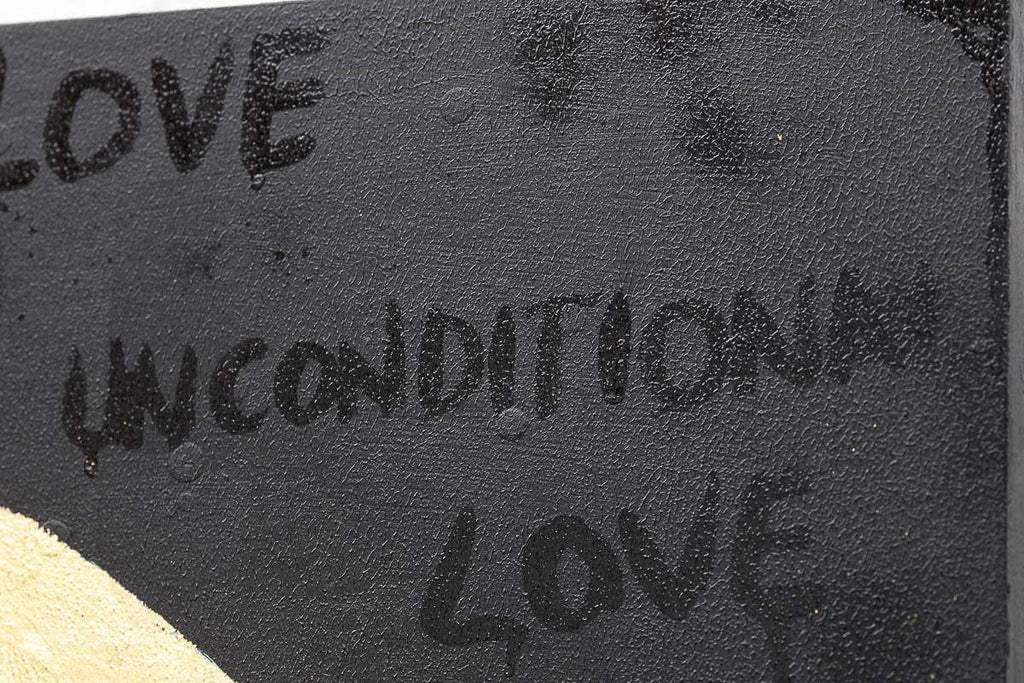 LOVE
UNCONDITIONAL
LOVE